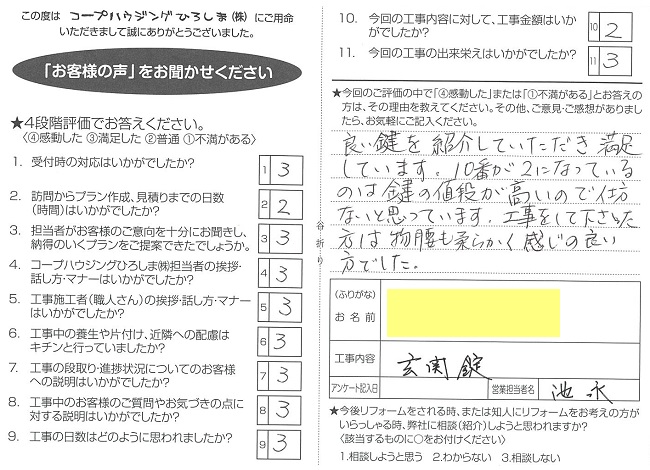 この度は コープハウジングひろしま(株) にご用命
いただきまして誠にありがとうございました。
「お客様の声」をお聞かせください
★4段階評価でお答えください。
〈④感動した ③満足した ②普通 ①不満がある〉
1. 受付時の対応はいかがでしたか? 1 3
2. 訪問からプラン作成、見積りまでの日数
(時間)はいかがでしたか? 2 2
3. 担当者がお客様のご意向を十分にお聞きし、
納得のいくプランをご提案できたでしょうか。 3 3
4. コープハウジングひろしま㈱担当者の挨拶・
話し方・マナーはいかがでしたか? 4 3
5. 工事施工者(職人さん)の挨拶・話し方・マナー
はいかがでしたか? 5 3
6. 工事中の養生や片付け、近隣への配慮は
キチンと行っていましたか? 6 3
7. 工事の段取り・進捗状況についてのお客様
への説明はいかがでしたか? 7 3
8. 工事中のお客様のご質問やお気づきの点に
対する説明はいかがでしたか? 8 3
9. 工事の日数はどのように思われましたか? 9 3
谷折り
10. 今回の工事内容に対して、工事金額はいか
がでしたか? 10 2
11. 今回の工事の出来栄えはいかがでしたか? 11 3
★今回のご評価の中で「④感動した」または「①不満がある」とお答えの
方は、その理由を教えてください。その他、ご意見・ご感想がありまし
たら、お気軽にご記入ください。
良い鍵を紹介していただき満足
しています。10番が2になっている
のは鍵の値段が高いので仕方
ないと思っています。工事をして下さった
方は物腰も柔らかく感じの良い
方でした。
(ふりがな)
お名前
工事内容 玄関錠
アンケート記入日 営業担当者名 池永
★今後リフォームをされる時、または知人にリフォームをお考えの方が
いらっしゃる時、弊社に相談(紹介)しようと思われますか?
〈該当するものに○をお付けください〉
1.相談しようと思う 2.わからない 3.相談しない